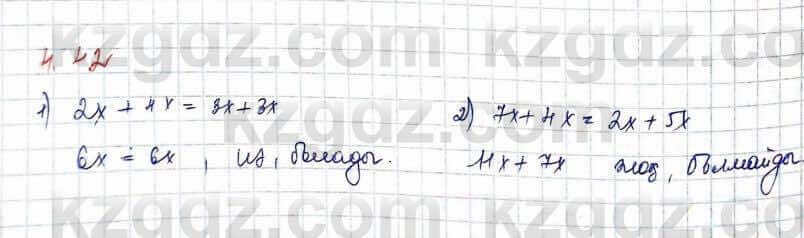 kzgdz.com kzgdz.com
4.42
1) 2x + 4x = 3x + 3x
6x = 6x, иә, болады.
2) 7x + 4x = 2x + 5x
11x + 7x жоқ, болмайды.
kzgdz.com kzgdz.com